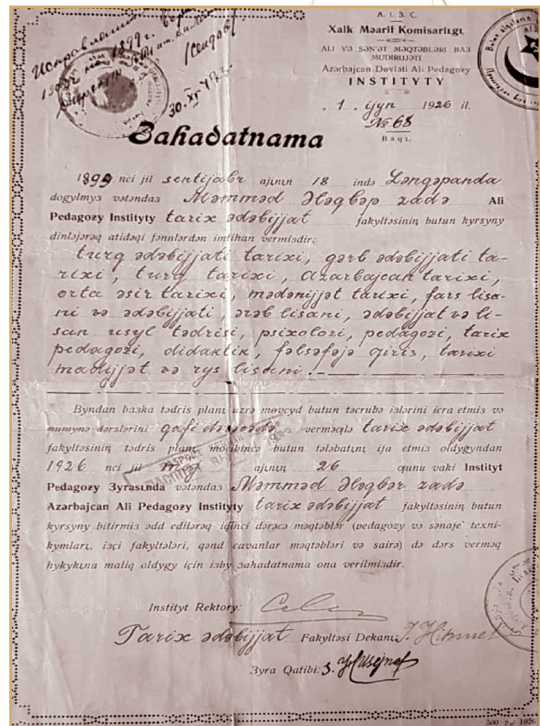 A. I. Ş. C.
Xalk Məarif Komisarlıgı.
ALI VƏ SƏN'ƏT MƏQTƏBLƏRI BAЗ
MUDIRIJJƏTI
Azərbajcan Dəvləti Ali Pedagoƶy
INSTITYTY
1 ijyn 1926 il.
№ 68
Bakı.
30.XI-
Зahadatnama
1899 nci jil sentijabr ajının 18 ində Ləngəpanda
dogylmyз vətəndaз Məmməd Ələgbər zadə Ali
Pedagoƶy Instityty tarix ədəbijjat fakyltəsinin butun kyrsyny
dinləjərəq atidəqi fənnlərdən imtihan vermiзdir:
turq ədəbijjati tarixi, gərb ədəbijjati ta-
rixi, turq tarixi, azarbajcan tarixi,
orta əsir tarixi, mədənijjət tarixi, fars lisa-
ni və ədəbijjati, ərəb lisani, ədəbijjat və li-
san usyl tədrisi, psixoloƶi, pedagoƶi, tarix
pedagoƶi, didaktik, fəlsəfəjə giriз, tarixi
madijjət və rys lisani.
Byndan baзka tədris planı uzrə məvcyd butun təcrubə iзlərini icra etmiз və
numynə dərslərini qafi dərəcədə verməqlə tarix ədəbijjat
fakyltəsinin tədris planı mocibincə butun tələbatını ifa etmiз oldygyndan
1926 nci jil maj ajının 26 qunu vaki Instityt
Pedagoƶy Зyrasında vətəndaз Məmməd Ələgbər zadə
Azərbajcan Ali Pedagoƶy Instityty tarix ədəbijjat fakyltəsinin butun
kyrsyny bitirmiз ədd edilərəq iqinci dərəcə məqtəblər (pedagoƶy və sənaje texni-
kymları, iзçi fakyltələri, qənd cavanlar məqtəbləri və sairə) də dərs verməq
kykykına maliq oldygy için iзby зahadatnama ona verilmiзdir.
Instityt Rektory:
Tarix ədəbijjat Fakyltəsi Dekanı
Зyra Qatibi: